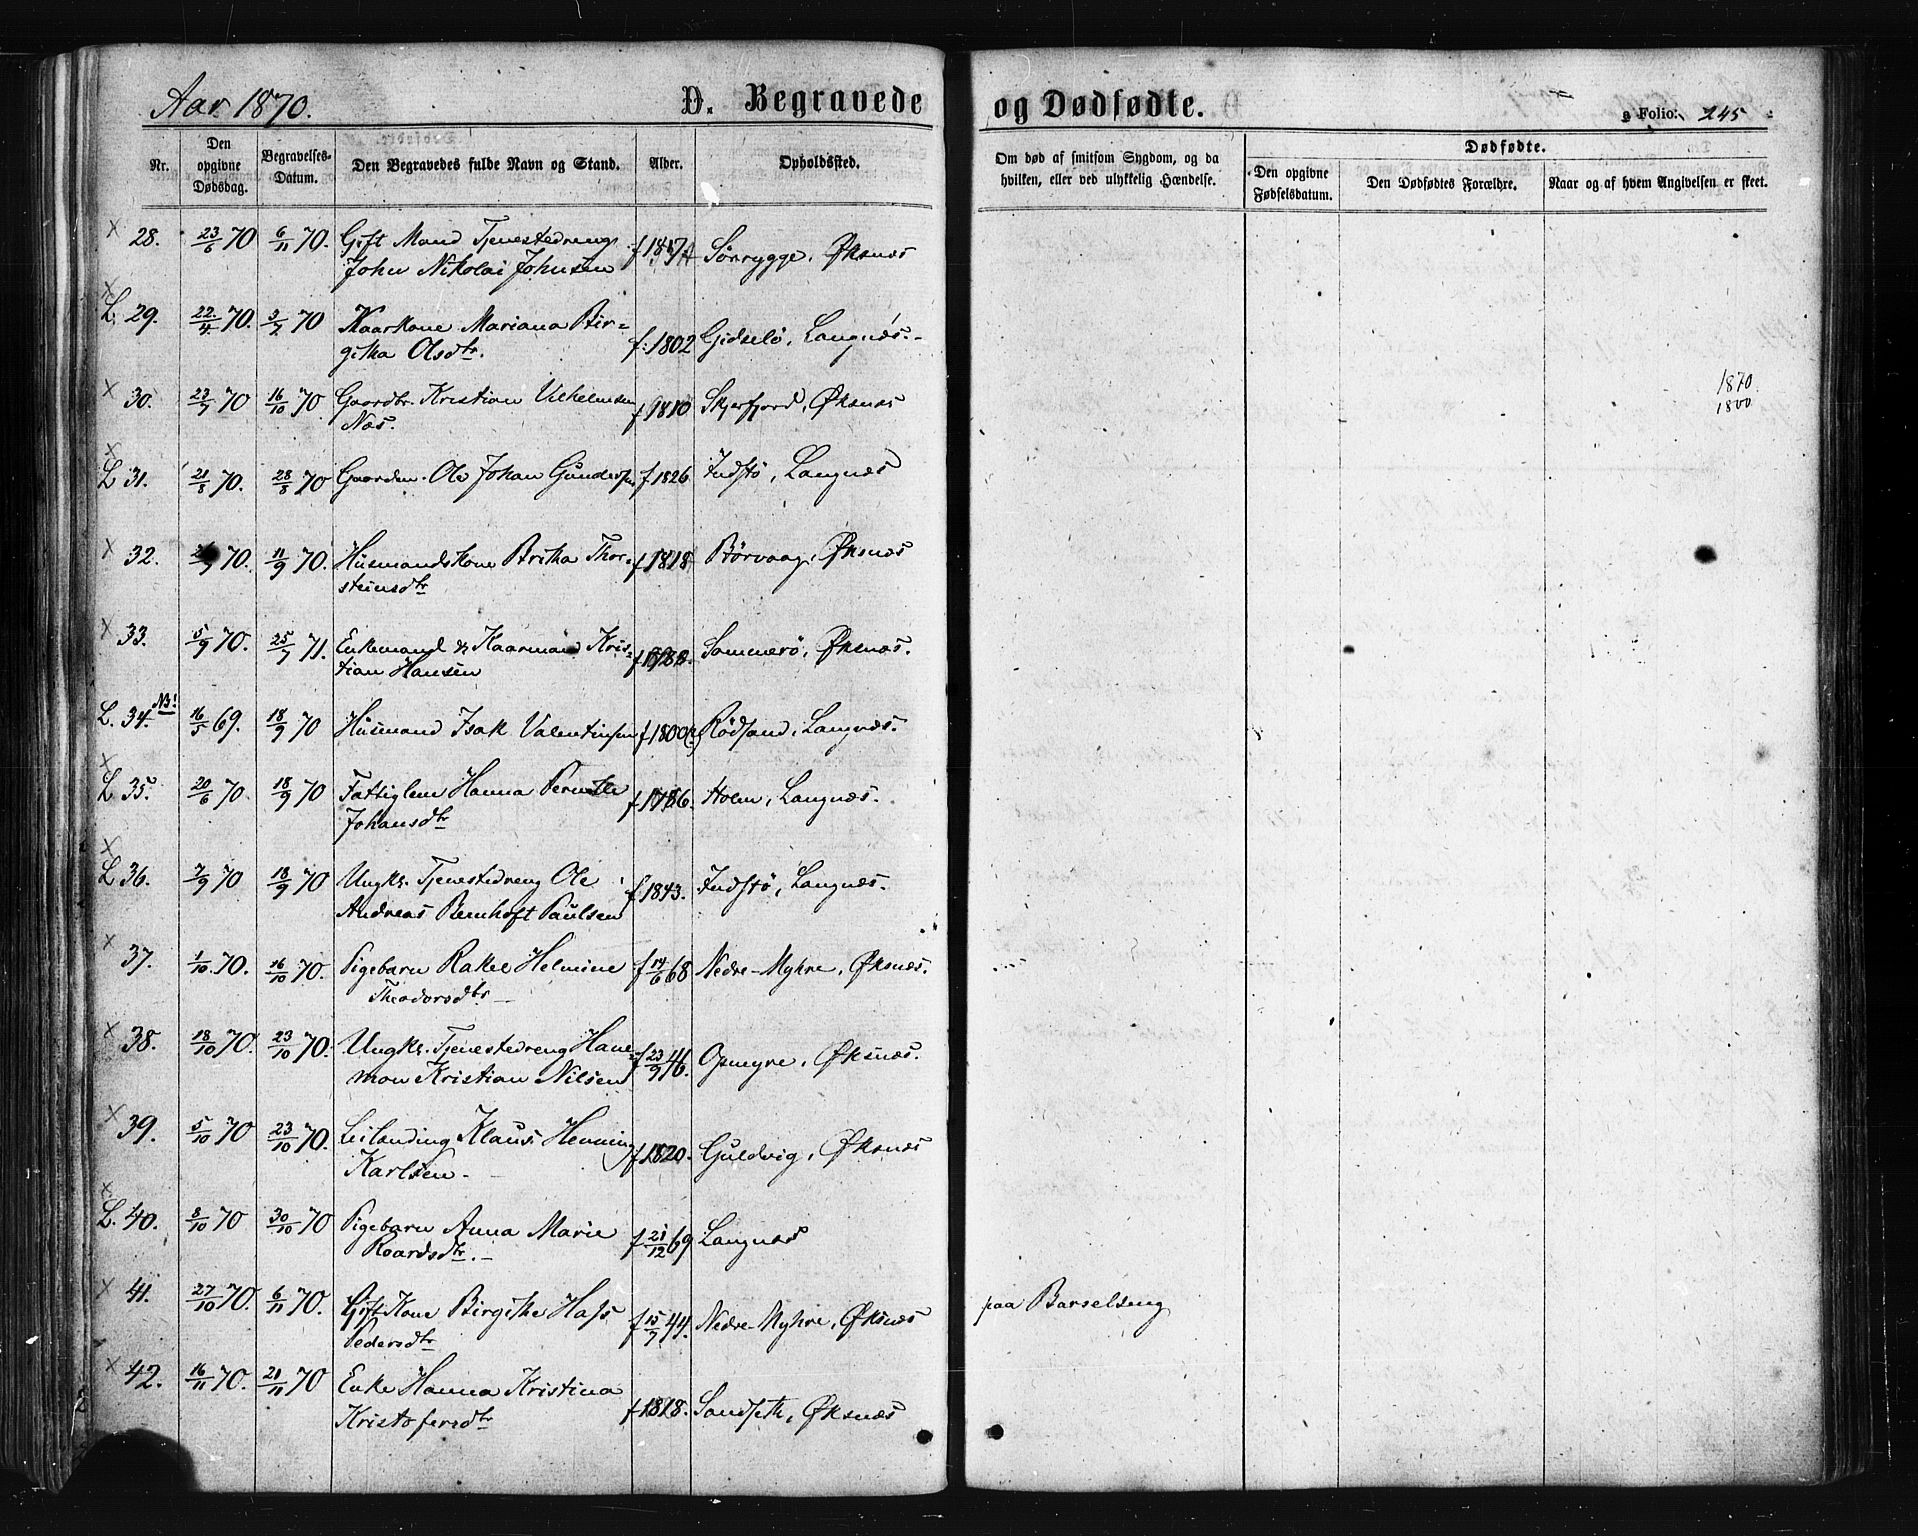 Aar 1870.
D. Begravede og Dødfødte.
Folio: 245
Nr.
Den opgivne Dødsdag.
Begravelses-Datum.
Den Begravedes fulde Navn og Stand.
Alder.
Opholdssted.
Om død af smitsom Sygdom, og da hvilken, eller ved ulykkelig Hændelse.
Dødfødte.
Den opgivne Fødselsdatum.
Den Dødfødtes Forældre.
Naar og af hvem Angivelsen er skeet.
× 28. 23/6 70 6/11 70. Gift Mand Tjenestedreng
John Nikolai Johnsen Sørrygge, Øksnæs
× L. 29. 22/4 70. 3/7 70 Kaarkone Mariana Bir=
githa Olsdtr. f. 1802 Gidselø, Langnæs.
× 30. 23/7 70 16/10 70 Gaardbr. Kristian Vilhelmsen
Næs. f 1810 Skjerfjord, Øksnæs
1870
1800
× L 31. 21/8 70. 28/8 70 Gaardm. Ole Johan Gunders. f. 1826 Indstø, Langnæs
× 32. 70. 11/9 70. Husmandskone Britha Thor=
steinsdtr f 1818 Børvaag, Øksnæs
× 33. 5/9 70. 25/7 71. Enkemand & Kaarmand Kris=
tian Hansen f 1788. Sommerø, Øksnæs.
L. 34. NB! 16/5 69. 18/9 70 Husmand Isak Valentinsen f 1800 Rødsand, Langnæs.
× L 35. 20/6 70. 18/9 70 Fattiglem Hanna Pernille
Johansdtr f 1786. Holm, Langnæs.
× L 36. 7/9 70 18/9 70 Ungk. Tjenestedreng Ole
Andreas Bernhoft Paulsen f 1843. Indstø, Langnæs.
× 37. 1/10 70. 16/10 70. Pigebarn Rakel Helmine
Theodorsdtr f 14/6 68 Nedre-Myhre, Øksnæs.
× 38. 18/10 70. 23/10 70. Ungk. Tjenestedreng Hane=
mon Kristian Nilsen f 23/9 46. Opmyre, Øksnæs.
× 39. 5/10 70 23/10 70. Leilænding Klaus Henning
Karlsen f 1820. Guldvig, Øksnæs
× L. 40. 8/10 70 30/10 70 Pigebarn Anna Marie
Roardsdtr. f 21/12 69 Langnæs
× 41. 27/10 70. 6/11 70. Gift Kone Birgithe Hass
Pedersdtr f 15/7 44. Nedre-Myhre, Øksnæs paa Barselseng
× 42. 16/11 70. 21/11 70 Enke Hanna Kristina
Kristofersdtr f 1818. Sandseth, Øksnæs